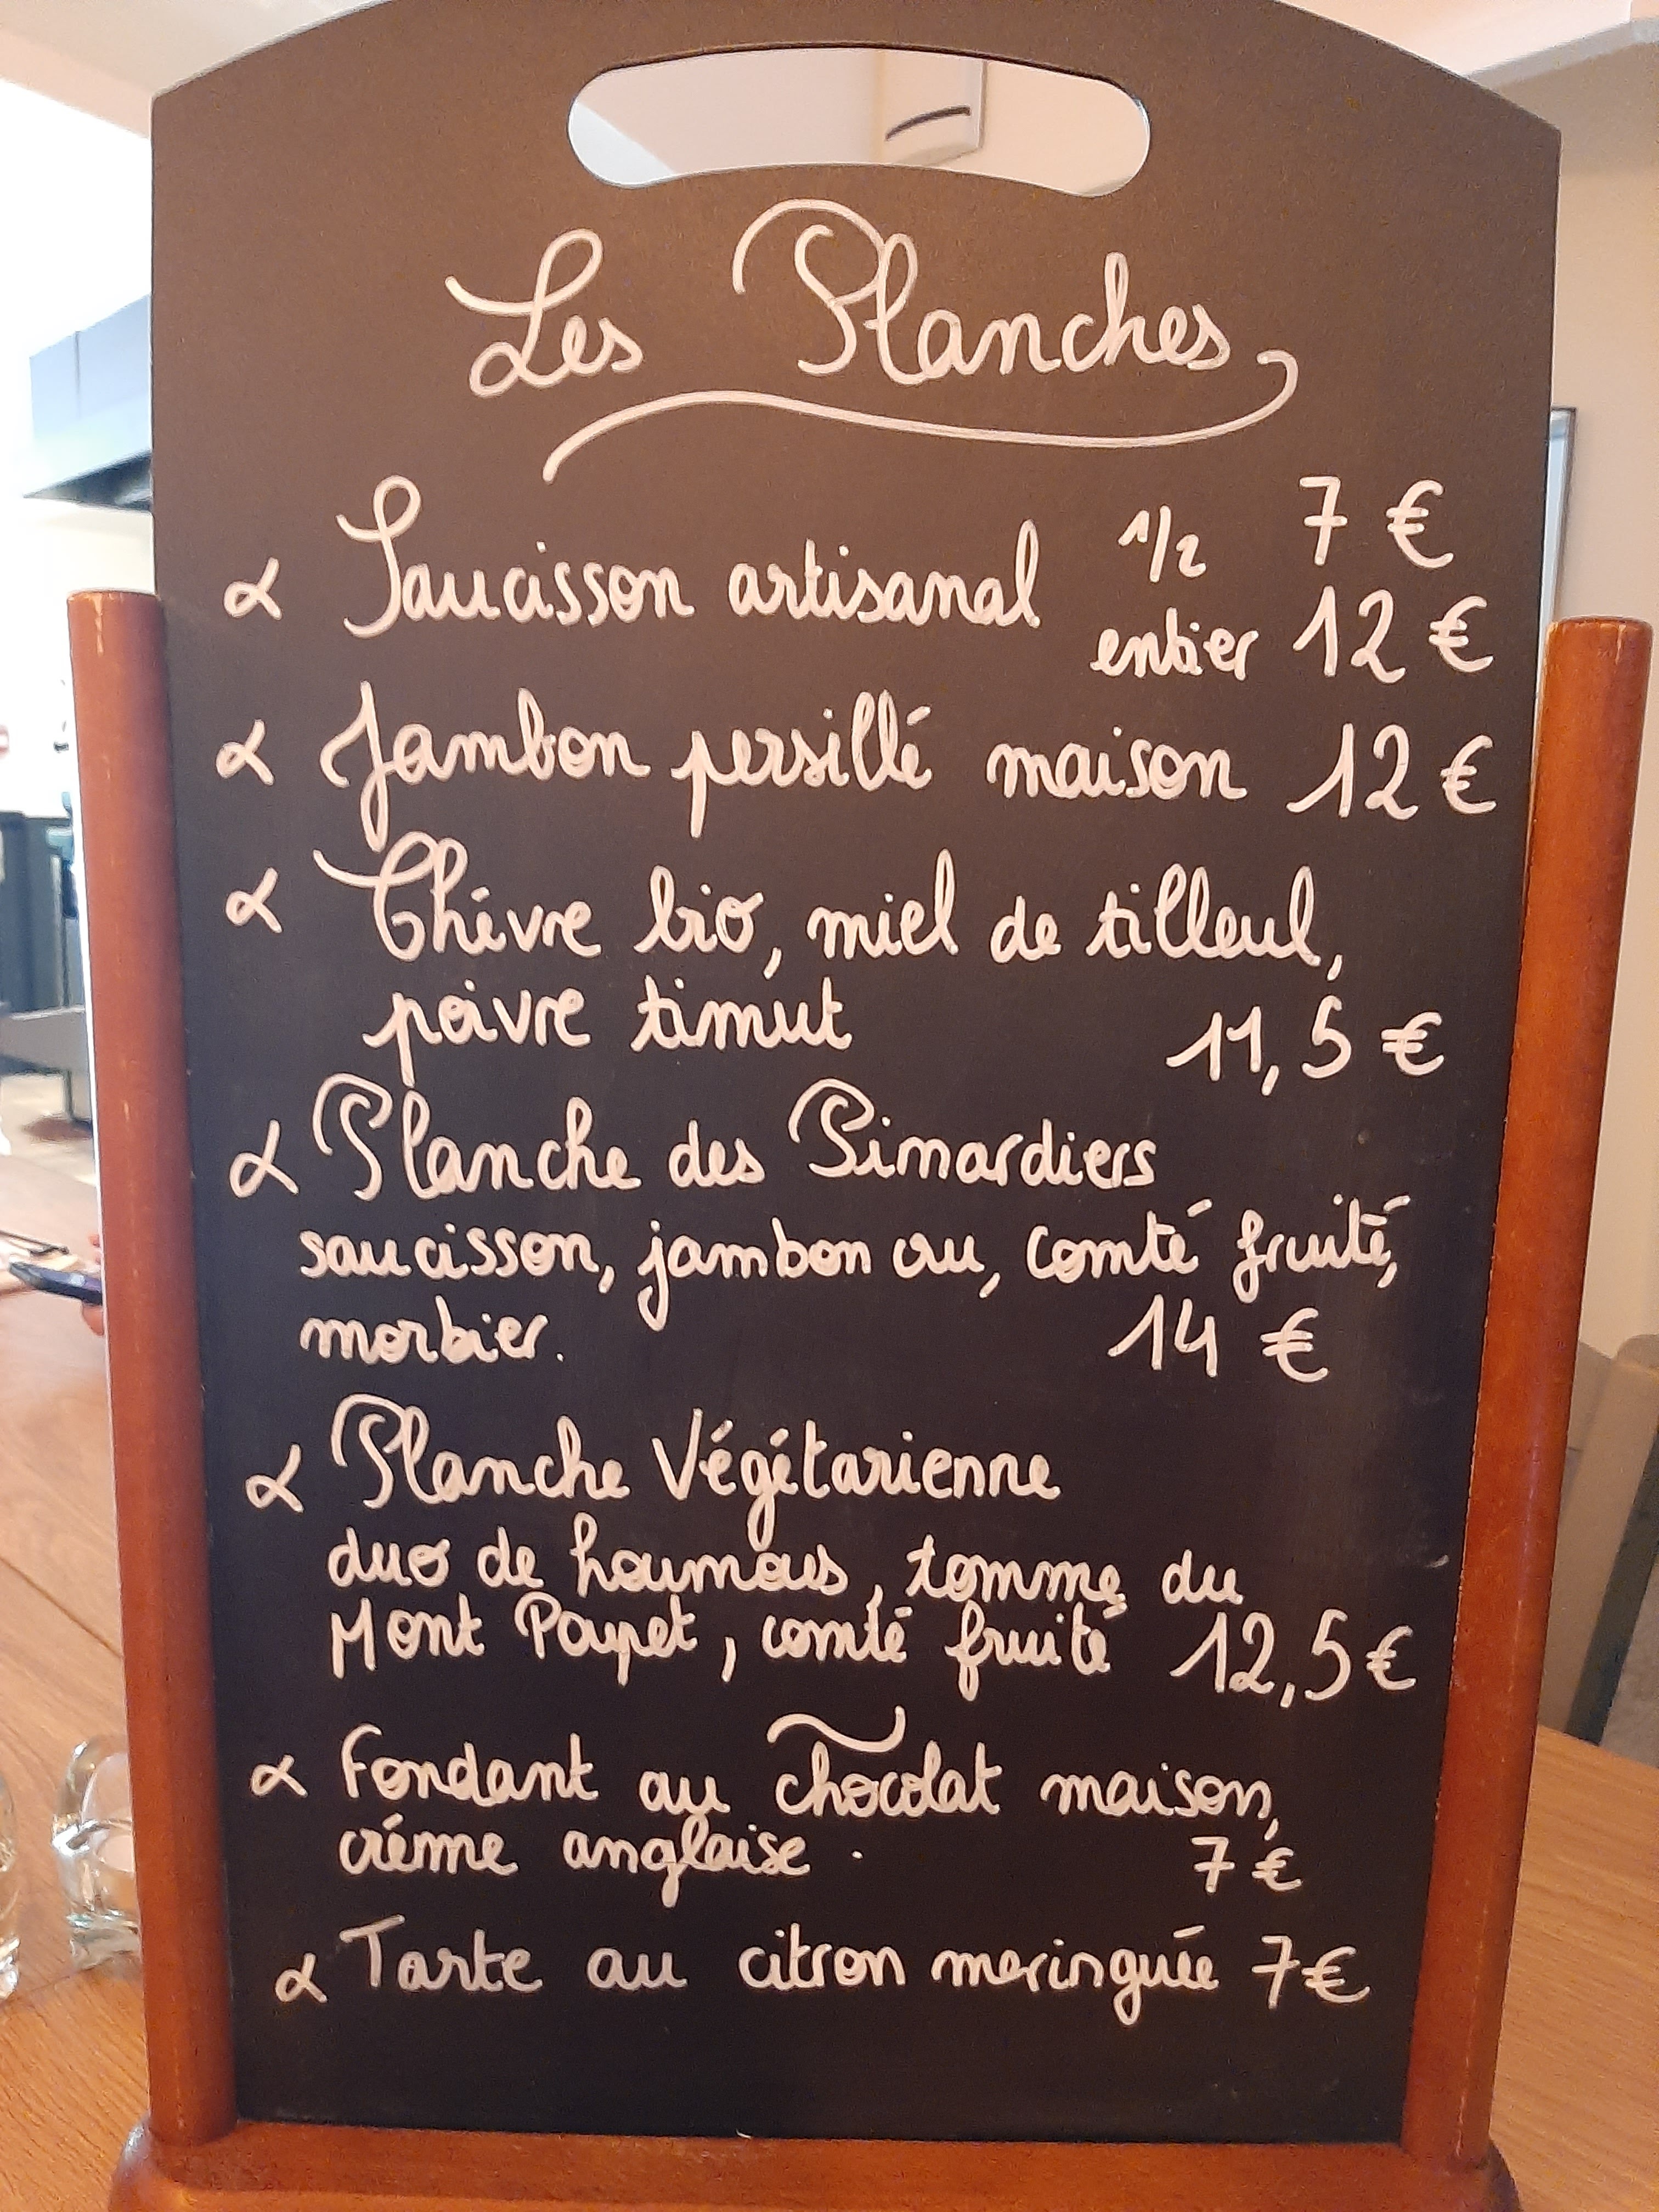 Les Planches
Saucisson artisanal 1/2 7 €
entier 12 €
Jambon persillé maison 12 €
Chèvre bio, miel de tilleul,
poivre timut 11,5 €
Planche des Pimardiers
saucisson, jambon cru, comté fruité,
morbier. 14 €
Planche Végétarienne
duo de houmous, tomme du
Mont Poupet, comté fruité 12,5 €
Fondant au chocolat maison,
crème anglaise. 7 €
Tarte au citron meringuée 7 €